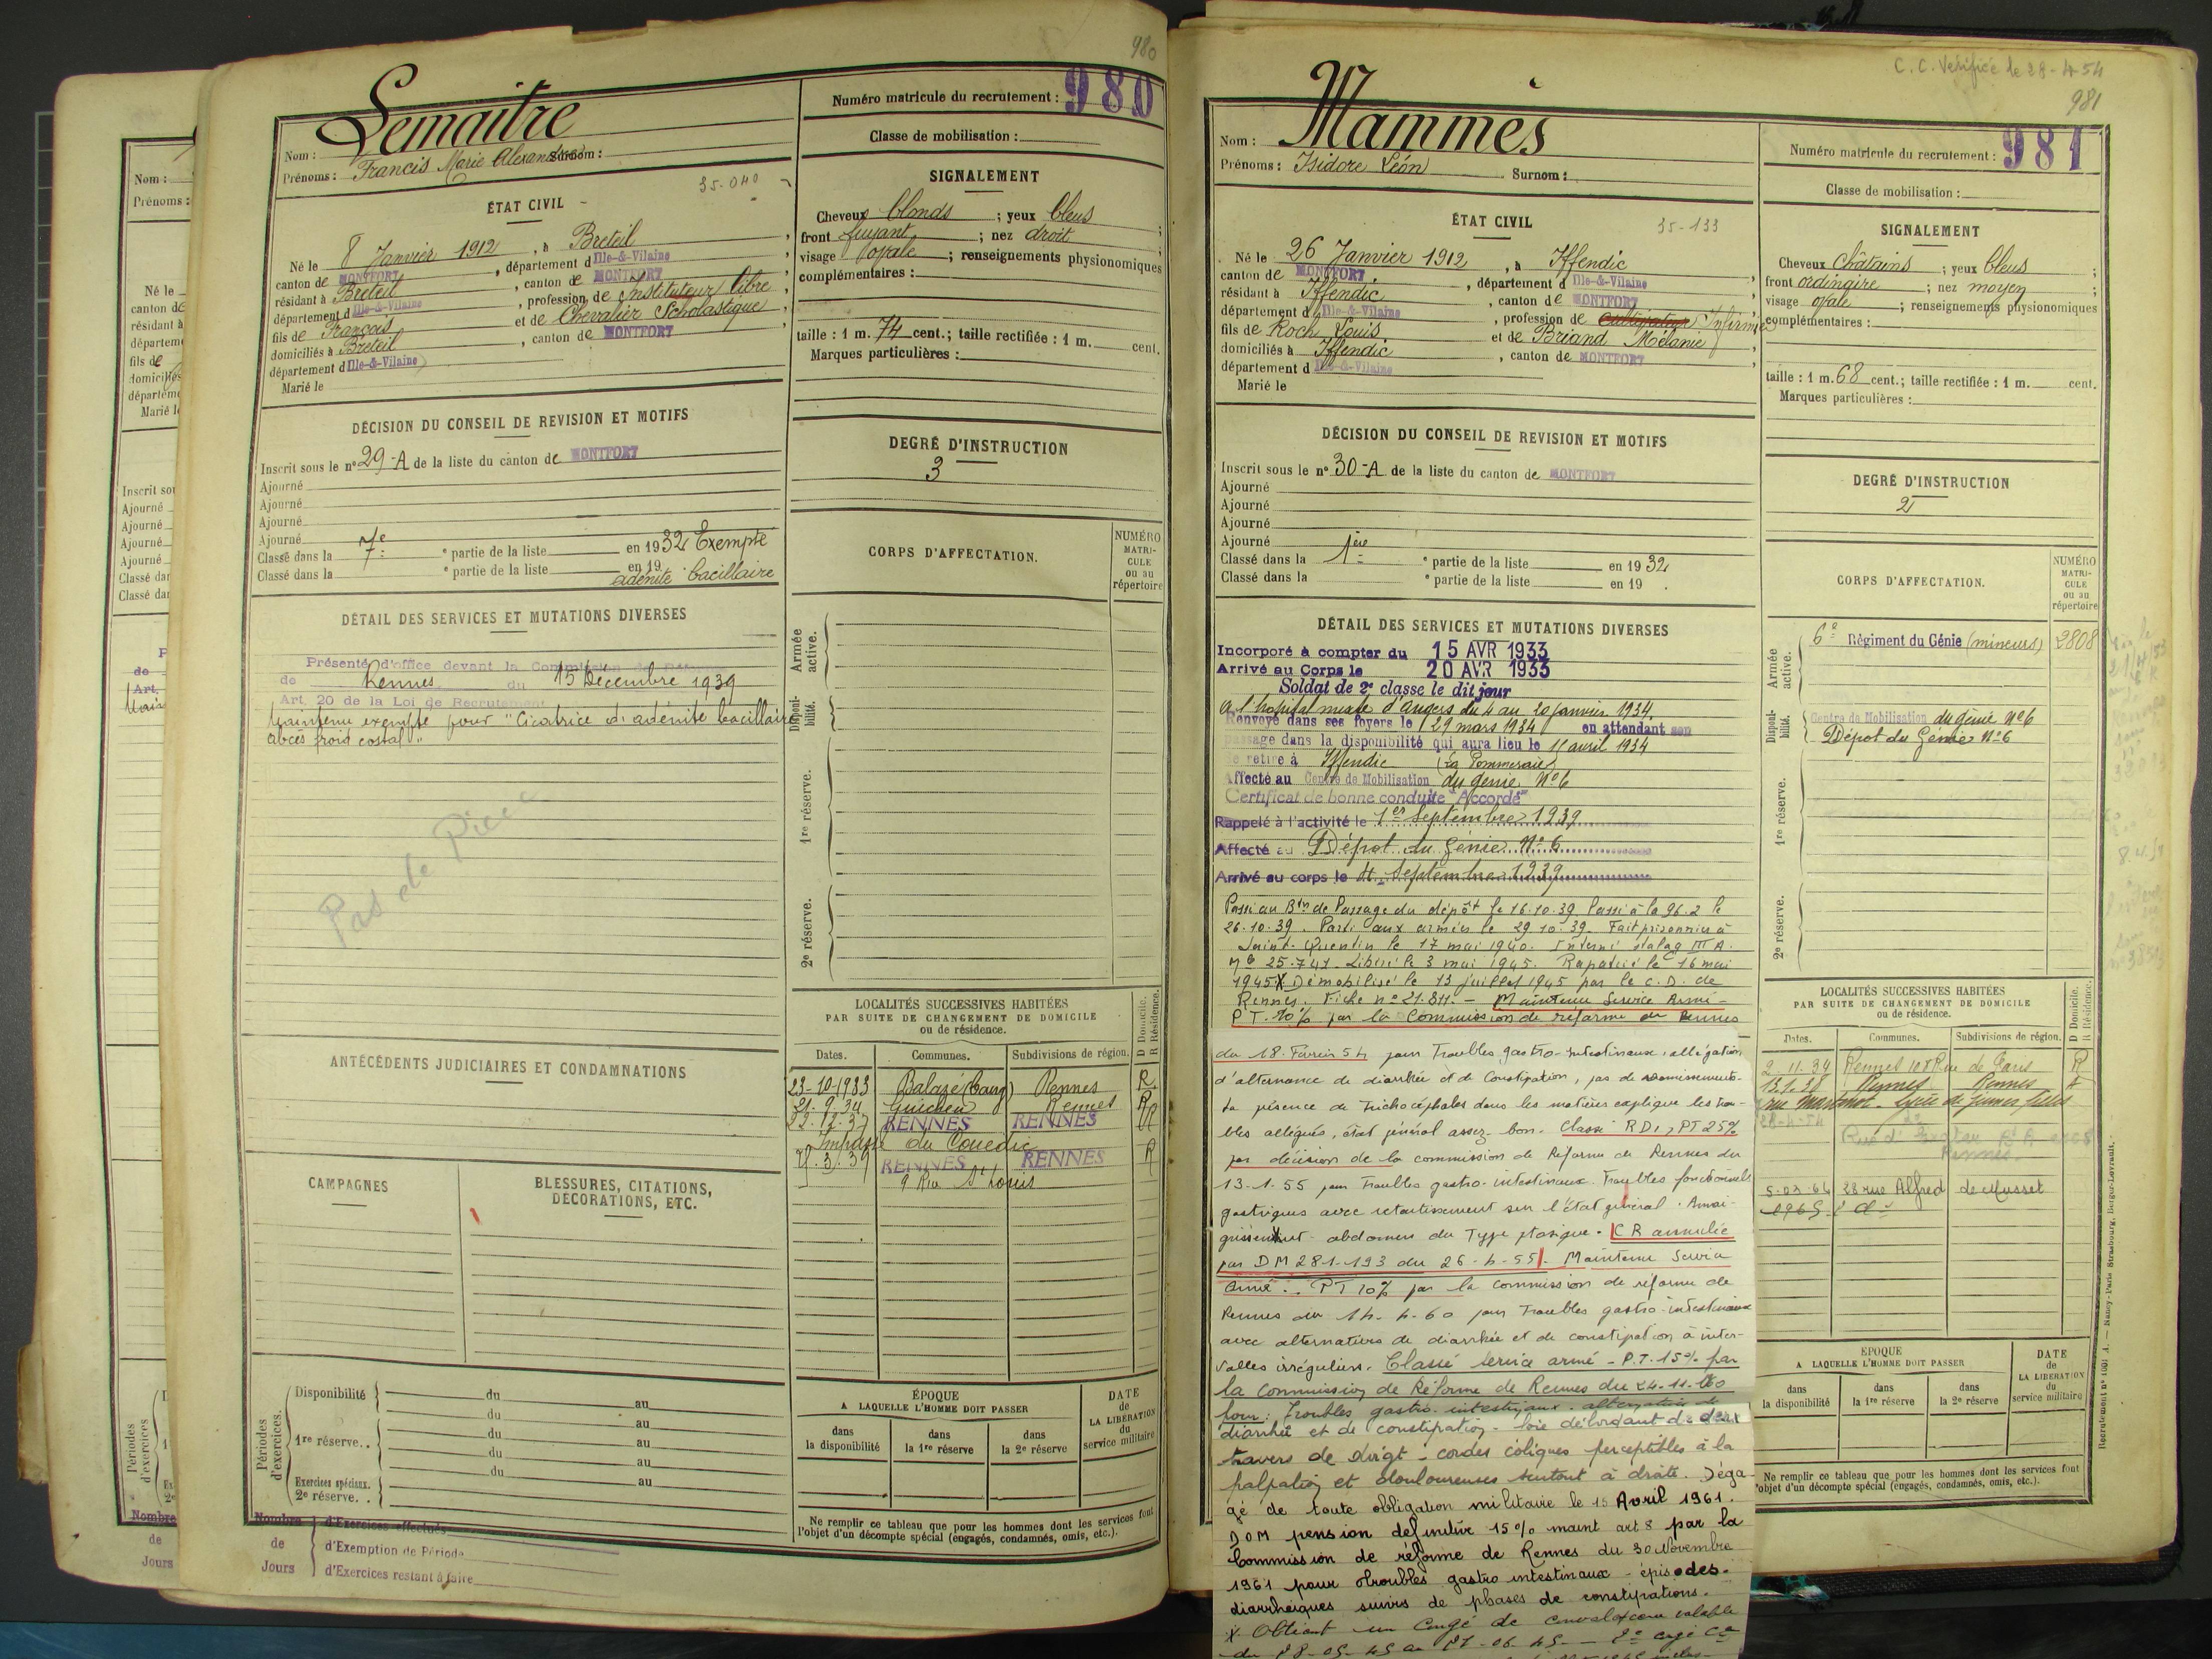 980
Lemaitre
Nom :
Prénoms : Francis Marie Alexandre Surnom :
Numéro matricule du recrutement : 980
Classe de mobilisation :
35-040
ÉTAT CIVIL
Né le 8 Janvier 1912, à Breteil,
canton de MONTFORT, département d Ille-&-Vilaine
résidant à Breteil, canton de MONTFORT,
département d Ille-&-Vilaine, profession de Instituteur libre,
fils de François et de Chevalier Scholastique,
domiciliés à Breteil, canton de MONTFORT
département d Ille-&-Vilaine
Marié le
SIGNALEMENT
Cheveux blonds ; yeux bleus ;
front fuyant ; nez droit ;
visage ovale ; renseignements physionomiques
complémentaires :
taille : 1 m. 74 cent.; taille rectifiée : 1 m. cent.
Marques particulières :
DÉCISION DU CONSEIL DE REVISION ET MOTIFS
Inscrit sous le n° 29-A de la liste du canton de MONTFORT
Ajourné
Ajourné
Ajourné
Ajourné
Classé dans la 7e e partie de la liste en 1932 Exempté
Classé dans la e partie de la liste en 19
adénite bacillaire
DEGRÉ D'INSTRUCTION
3
DÉTAIL DES SERVICES ET MUTATIONS DIVERSES
Présenté d'office devant la Commission de Réforme
de Rennes du 15 Décembre 1939
Art. 20 de la Loi de Recrutement
Maintenu exempté pour "Cicatrice d'adénite bacillaire
abcès froid costal"
Pas de Pièce
CORPS D'AFFECTATION.
NUMÉRO MATRI-CULE ou au répertoire
Armée active.
Disponibilité.
1re réserve.
2e réserve.
ANTÉCÉDENTS JUDICIAIRES ET CONDAMNATIONS
LOCALITÉS SUCCESSIVES HABITÉES
PAR SUITE DE CHANGEMENT DE DOMICILE
ou de résidence.
D Domicile. R Résidence.
Dates. Communes. Subdivisions de région.
23-10-1933 Balazé (bourg) Rennes R
21.9.34 Guichen Rennes R
22.12.37 RENNES RENNES R
Impasse du Couedic
21.3.39 RENNES RENNES R
9 Rue St Louis
CAMPAGNES
BLESSURES, CITATIONS,
DÉCORATIONS, ETC.
Périodes d'exercices.
Disponibilité du au
du au
1re réserve.. du au
du au
Exercices spéciaux. du au
2e réserve. .
ÉPOQUE
A LAQUELLE L'HOMME DOIT PASSER
dans la disponibilité
dans la 1re réserve
dans la 2e réserve
DATE de LA LIBÉRATION du service militaire
Ne remplir ce tableau que pour les hommes dont les services font
l'objet d'un décompte spécial (engagés, condamnés, omis, etc.).
Nombre d'Exercices effectués
de d'Exemption de Période
Jours d'Exercices restant à faire
C. C. Vérifiée le 28-4-54
981
Mammès
Nom :
Prénoms : Isidore Léon Surnom :
Numéro matricule du recrutement : 981
Classe de mobilisation :
ÉTAT CIVIL
35-133
Né le 26 Janvier 1912, à Iffendic
canton de MONTFORT, département d Ille-&-Vilaine
résidant à Iffendic, canton de MONTFORT
département d Ille-&-Vilaine, profession de cultivateur Infirmier
fils de Roch Louis et de Briand Mélanie
domiciliés à Iffendic, canton de MONTFORT
département d Ille-&-Vilaine
Marié le
SIGNALEMENT
Cheveux châtains ; yeux bleus ;
front ordinaire ; nez moyen ;
visage ovale ; renseignements physionomiques
complémentaires :
taille : 1 m. 68 cent.; taille rectifiée : 1 m. cent.
Marques particulières :
DÉCISION DU CONSEIL DE REVISION ET MOTIFS
Inscrit sous le n° 30-A de la liste du canton de MONTFORT
Ajourné
Ajourné
Ajourné
Ajourné
Classé dans la 1ère e partie de la liste en 1932
Classé dans la e partie de la liste en 19 .
DEGRÉ D'INSTRUCTION
2
DÉTAIL DES SERVICES ET MUTATIONS DIVERSES
Incorporé à compter du 15 AVR 1933
Arrivé au Corps le 20 AVR 1933
Soldat de 2e classe le dit jour
A l'hôpital mixte d'Angers du 4 au 20 janvier 1934.
Renvoyé dans ses foyers le 29 mars 1934 en attendant son
passage dans la disponibilité qui aura lieu le 15 avril 1934
Se retire à Iffendic (La Pommeraie)
Affecté au Centre de Mobilisation du génie N° 6
Certificat de bonne conduite "Accordé"
Rappelé à l'activité le 1er Septembre 1939
Affecté au Dépôt du Génie N° 6
Arrivé au corps le 4 Septembre 1939
Passé au Btn de Passage du dépôt le 16.10.39. Passé à la 96.2 le
26.10.39. Parti aux armées le 29.10.39. Fait prisonnier à
Saint-Quentin le 17 mai 1940. Interné stalag III A.
N° 25.741. Libéré le 3 mai 1945. Rapatrié le 16 mai
1945 X Démobilisé le 13 juillet 1945 par le C.D. de
Rennes. Fiche n° 21.811. - Maintenu Service Armé -
P T. 10% par la Commission de réforme de Rennes
du 18 Février 54 pour Troubles gastro-intestinaux, allégation
d'alternance de diarrhée et de Constipation, pas de vomissements.
La présence de Trichocéphales dans les matières explique les trou-
bles allégués, état général assez bon. Classé R D 1, PT 25%
par décision de la commission de Réforme de Rennes du
13-1-55 pour Troubles gastro-intestinaux. Troubles fonctionnels
gastriques avec retentissement sur l'état général. Amai-
grissement - abdomen du Type ptosique. C R annulée
par D M 281-193 du 26-4-55. Maintenu Service
Armé. PT 10% par la commission de réforme de
Rennes du 14-4-60 pour Troubles gastro-intestinaux
avec alternatives de diarrhée et de constipation à inter-
valles irréguliers. Classé service armé - P.T. 15% par
la Commission de Réforme de Rennes du 24-11-60
pour : Troubles gastro-intestinaux - alternatives de
diarrhée et de constipation - foie débordant de deux
travers de doigt - cordes coliques perceptibles à la
palpation et douloureuses surtout à droite. Déga-
gé de toute obligation militaire le 15 Avril 1961.
DOM pension définitive 15% maint art 8 par la
Commission de réforme de Rennes du 30 Novembre
1961 pour troubles gastro intestinaux - épisodes
diarrhéiques suivis de phases de constipations.
X Obtient un Congé de convalescence valable
du 18-05-45 au
CORPS D'AFFECTATION.
NUMÉRO MATRI-CULE ou au répertoire
Armée active. 6e Régiment du Génie (mineurs) 2808
Disponibilité. Centre de Mobilisation du génie N° 6
Dépôt du Génie N° 6
1re réserve.
2e réserve.
LOCALITÉS SUCCESSIVES HABITÉES
PAR SUITE DE CHANGEMENT DE DOMICILE
ou de résidence.
D Domicile. R Résidence.
Dates. Communes. Subdivisions de région.
2.11.34 Rennes 108 Rue de Paris R
13.1.38 Rennes Rennes
rue Martenot - Lycée de jeunes filles
28-4-54
Rennes
5-03-64 28 rue Alfred de Musset
1965 d°
ÉPOQUE
A LAQUELLE L'HOMME DOIT PASSER
dans la disponibilité
dans la 1re réserve
dans la 2e réserve
DATE de LA LIBÉRATION du service militaire
Ne remplir ce tableau que pour les hommes dont les services font
l'objet d'un décompte spécial (engagés, condamnés, omis, etc.).
Recrutement n° 1001 A. — Nancy-Paris-Strasbourg, Berger-Levrault.